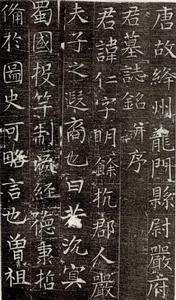 唐故絳州龍門縣尉嚴府
君墓誌銘并序
君諱仁字明餘杭郡人嚴
夫子之遐裔也曰若沉冥
蜀國投竿制瀨經德秉哲
俻於圖史可略言也曾祖